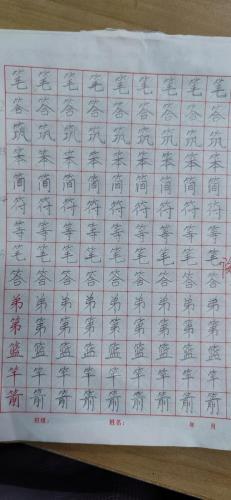 笔笔笔笔笔笔笔笔
答答答答答答答答
筑筑筑筑筑筑筑筑
笨笨笨笨笨笨笨笨
简简简简简简简简
符符符符符符符符
等等等等等等等等
笔笔笔笔笔笔笔笔
答答答答答答答答
弟弟弟弟弟弟弟弟
第第第第第第第第
篮篮篮篮篮篮篮篮
竿竿竿竿竿竿竿竿
箭箭箭箭箭箭箭箭
班级： 姓名： 年 月